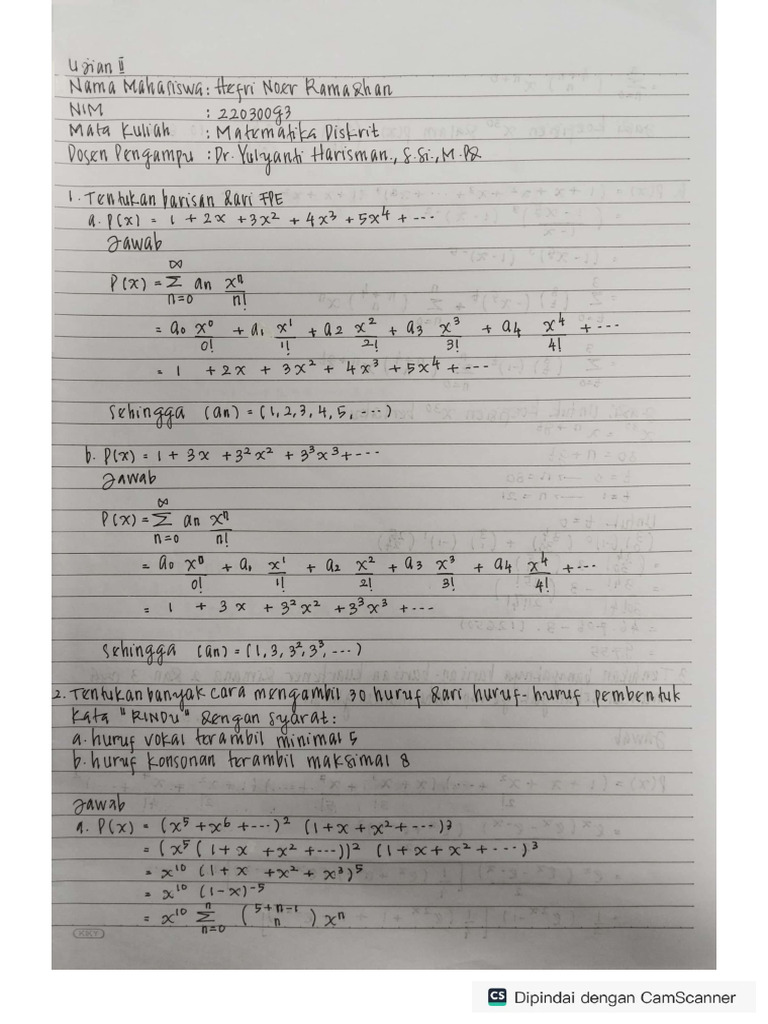 Ujian II
Nama Mahasiswa : Hefri Noer Ramadhan
NIM : 22030093
Mata Kuliah : Matematika Diskrit
Dosen Pengampu : Dr. Yulyanti Harisman., S.Si., M.Pd
1. Tentukan barisan dari FPE
a. P(x) = 1 + 2x + 3x² + 4x³ + 5x⁴ + ...
Jawab
P(x) = ∞Σn=0 an xⁿ/n!
= a₀ x⁰/0! + a₁ x¹/1! + a₂ x²/2! + a₃ x³/3! + a₄ x⁴/4! + ...
= 1 + 2x + 3x² + 4x³ + 5x⁴ + ...
Sehingga (an) = (1, 2, 3, 4, 5, ...)
b. P(x) = 1 + 3x + 3²x² + 3³x³ + ...
Jawab
P(x) = ∞Σn=0 an xⁿ/n!
= a₀ x⁰/0! + a₁ x¹/1! + a₂ x²/2! + a₃ x³/3! + a₄ x⁴/4! + ...
= 1 + 3x + 3²x² + 3³x³ + ...
Sehingga (an) = (1, 3, 3², 3³, ...)
2. Tentukan banyak cara mengambil 30 huruf dari huruf-huruf pembentuk
kata "RINDU" dengan syarat:
a. huruf vokal terambil minimal 5
b. huruf konsonan terambil maksimal 8
Jawab
a. P(x) = (x⁵ + x⁶ + ...)² (1 + x + x² + ...)³
= (x⁵ (1 + x + x² + ...))² (1 + x + x² + ...)³
= x¹⁰ (1 + x + x² + x³)⁵
= x¹⁰ (1-x)⁻⁵
= x¹⁰ nΣn=0 (5+n-1 n) xⁿ
KKY
CS Dipindai dengan CamScanner